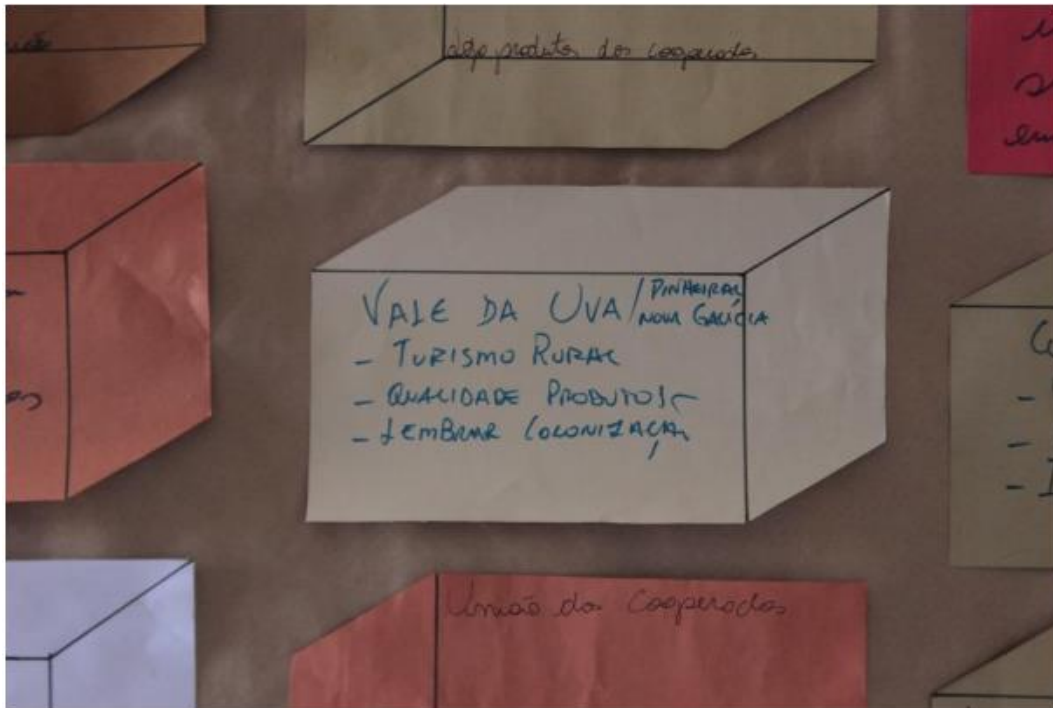 dos produtos dos cooperados
VALE DA UVA / PINHEIRAL
NOVA GALÍCIA
- TURISMO RURAL
- QUALIDADE PRODUTOS
- LEMBRAR COLONIZAÇÃO
União dos Cooperados